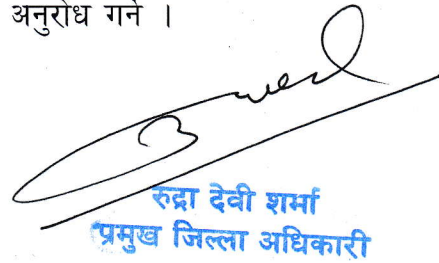 अनुरोध गर्ने ।
रुद्रा देवी शर्मा
प्रमुख जिल्ला अधिकारी